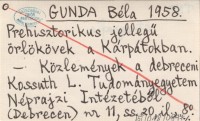 GUNDA Béla 1958.
Prehisztorikus jellegű
őrlőkövek a Kárpátokban.
– Közlemények a debreceni
Kossuth L. Tudományegyetem
Néprajzi Intézetéből
(Debrecen) nr 11, ss. 20, il. 80.